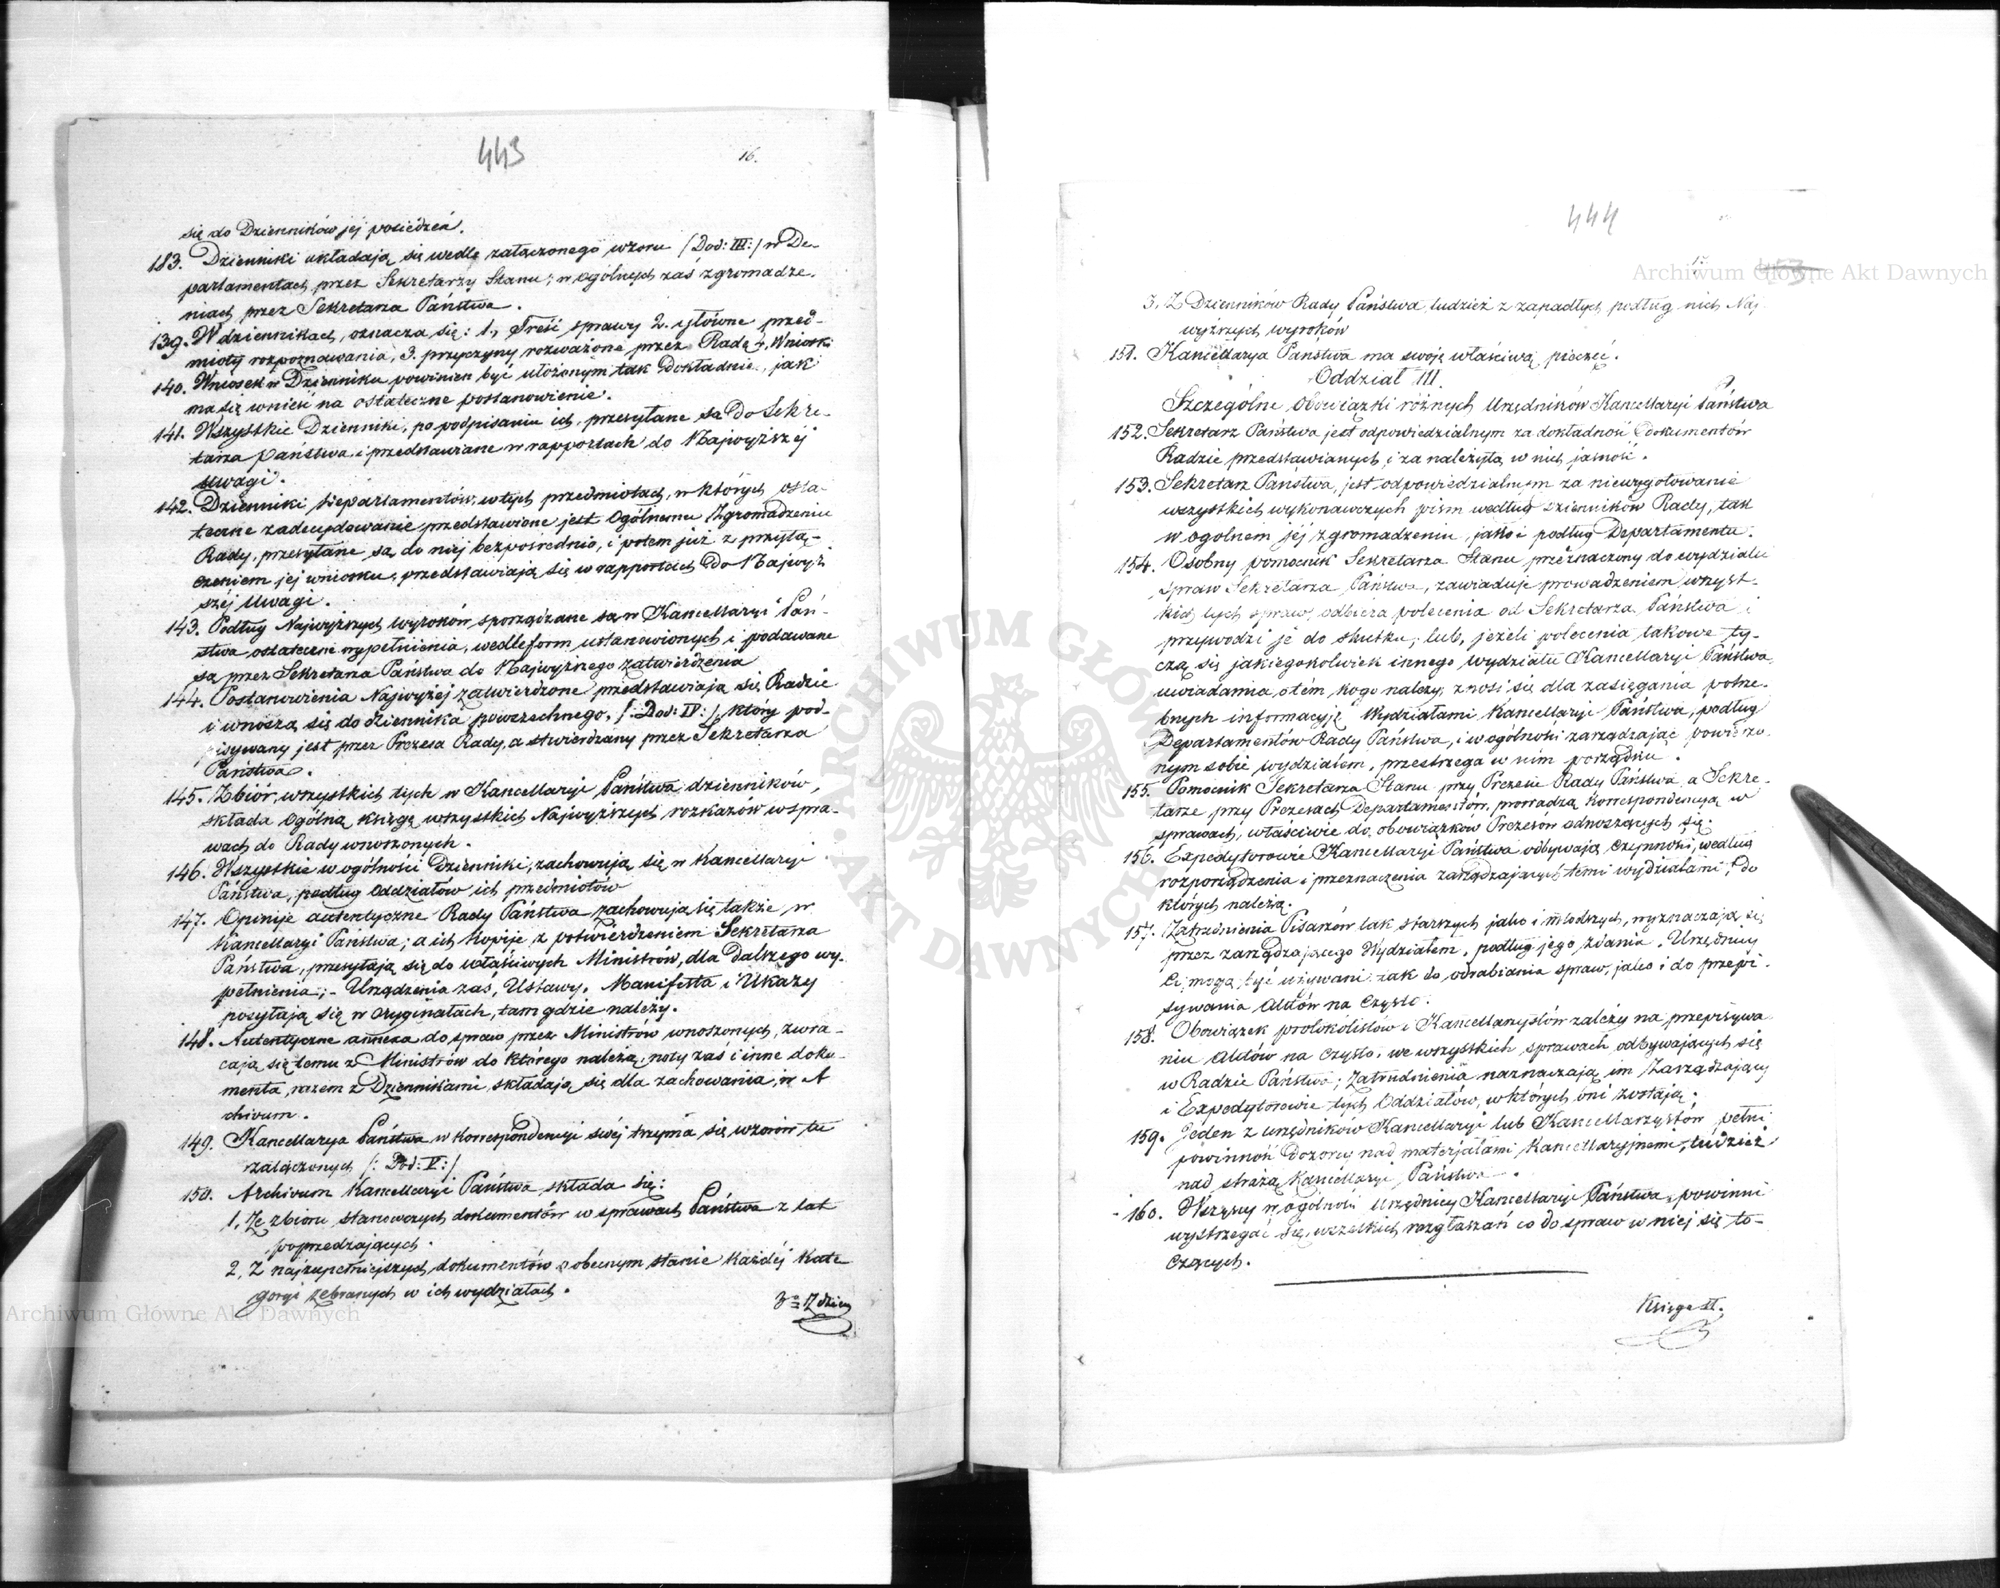 443
16.
się do Dzienników jej posiedzeń.
183. Dzienniki układają się wedle załączonego wzoru /Dod: III:/ w De-
partamentach przez Sekretarzy Stanu; w ogólnych zaś zgromadze-
niach przez Sekretarza Państwa.
139. W dziennikach, oznacza się: 1, Treść sprawy 2. główne przed-
mioty rozpoznawania, 3. przyczyny rozważone przez Radę 4. Wnioski
140. Wniosek w Dzienniku powinien być ułożonym tak dokładnie, jak
ma się wnieść na ostateczne postanowienie.
141. Wszystkie Dzienniki, po podpisaniu ich, przesyłane są do Sekre-
tarza Państwa i przedstawiane w rapportach do Najwyższéj
Uwagi.
142. Dzienniki Departamentów, w tych przedmiotach, w których osta-
teczne zadecydowanie przedstawione jest Ogólnemu Zgromadzeniu
Rady, przesyłane są do niéj bezpośrednio, i potem już z przyłą-
czeniem jej wniosku, przedstawiają się w rapportach do Najwyż-
széj Uwagi.
143. Podług Najwyższych wyroków, sporządzane są w Kancellaryi Pań-
stwa ostateczne wypełnienia, wedle form ustanowionych i podawane
są przez Sekretarza Państwa do Najwyższego zatwierdzenia
144. Postanowienia Najwyżéj zatwierdzone przedstawiają się Radzie
i wnoszą się do dziennika powszechnego, /: Dod: IV:/, który pod-
pisywany jest przez Prezesa Rady, a stwierdzany przez Sekretarza
Państwa.
145. Zbiór, wszystkich tych w Kancellaryi Państwa dzienników,
składa Ogólną Księgę wszystkich Najwyższych rozkazów w spra-
wach do Rady wnoszonych.
146. Wszystkie w ogólności Dzienniki, zachowują się w Kancellaryi
Państwa, podług oddziałów ich przedmiotów
147. Opinije autentyczne Rady Państwa zachowują się także w
Kancellaryi Państwa; a ich kopije z potwierdzeniem Sekretarza
Państwa, przesyłają się do właściwych Ministrów, dla dalszego wy-
pełnienia; - Urządzenia zaś, Ustawy, Manifesta i Ukazy
posyłają się w oryginałach, tam gdzie należy.
148. Autentyczne annexa do spraw przez Ministrów wnoszonych, zwra-
cają się temu z Ministrów do którego należą, noty zaś i inne doku-
menta, razem z Dziennikami składają się dla zachowania, w A
chivum.
149. Kancellarya Państwa w korrespondencyi swéj trzyma się wzorów tu
załączonych /: Dod: V:/
150. Archivum Kancellaryi Państwa składa się:
1, Ze zbioru stanowczych dokumentów w sprawach Państwa z lat
poprzedzających.
2, Z najzupełniejszych dokumentów o obecnym stanie każdéj kate
goryi zebranych w ich wydziałach.
3o Z dzien
444
3, Z Dzienników Rady Państwa, tudzież z zapadłych podług nich Naj
wyższych wyroków
151. Kancellarya Państwa ma swoję właściwą pieczęć.
Oddział III.
Szczególne Obowiązki różnych Urzędników Kancellaryi Państwa
152. Sekretarz Państwa jest odpowiedzialnym za dokładność dokumentów
Radzie przedstawianych, i za należytą w nich jasność.
153. Sekretarz Państwa, jest odpowiedzialnym za niewygotowanie
wszystkich wykonawczych pism według Dzienników Rady, tak
w ogolnem jéj zgromadzeniu, jako i podług Departamentu.
154. Osobny pomocnik Sekretarza Stanu przeznaczony do wydziału
spraw Sekretarza Państwa, zawiaduje prowadzeniem wszyst-
kich tych spraw, odbiera polecenia od Sekretarza Państwa i
przywodzi je do skutku; lub, jeżeli polecenia takowe ty-
czą się jakiegokolwiek innego wydziału Kancellaryi Państwa,
uwiadamia o tém, kogo należy, znosi się dla zasięgania potrze-
bnych informacyi z Wydziałami Kancellaryi Państwa, podług
Departamentów Rady Państwa, i w ogólności zarządzając powierzo-
nym sobie wydziałem, przestrzega w nim porządku.
155. Pomocnik Sekretarza Stanu przy Prezesie Rady Państwa, a Sekre-
tarze przy Prezesach Departamentów, prowadzą korrespondencyą w
sprawach, właściwie do obowiązków Prezesów odnoszących się.
156. Expedytorowie Kancellaryi Państwa odbywają czynności, według
rozporządzenia i przeznaczenia zarządzających temi wydziałami, do
których należą.
157. Zatrudnienia Pisarzów tak starszych jako i młodszych, wyznaczają się
przez zarządzającego Wydziałem, podług jego zdania. Urzędnicy
Ci mogą być używani tak do odrabiania spraw, jako i do przepi-
sywania aktów na czysto.
158. Obowiązek protokólistów i Kancellarzystów zależy na przepisywa
niu aktów na czysto, we wszystkich sprawach odbywających się
w Radzie Państwa; zatrudnienia naznaczają im Zarządzający
i Expedytorowie tych Oddziałów, w których oni zostają;
159. Jeden z urzędników Kancellaryi lub Kancellarzystów pełni
powinność dozorcy nad materjałami Kancellaryjnemi, tudzież
nad strażą Kancellaryi Państwa.
160. Wszyscy w ogólności Urzędnicy Kancellaryi Państwa, powinni
wystrzegać się wszelkich rozgłaszań co do spraw w niéj się to-
czących.
Księga II.
Archiwum Główne Akt Dawnych
Archiwum Główne Akt Dawnych
ARCHIWUM GŁÓWNE AKT DAWNYCH